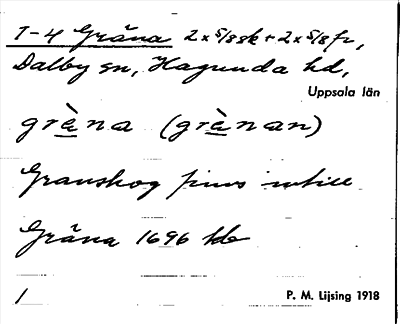 1-4 Gräna 2 x 5/8 sk + 2 x 5/8 fr,
Dalby sn, Hagunda hd,
Uppsala län
grὲna (grὲnan)
Granskog finns intill
Gräna 1696 Jb
1
P. M. Lijsing 1918